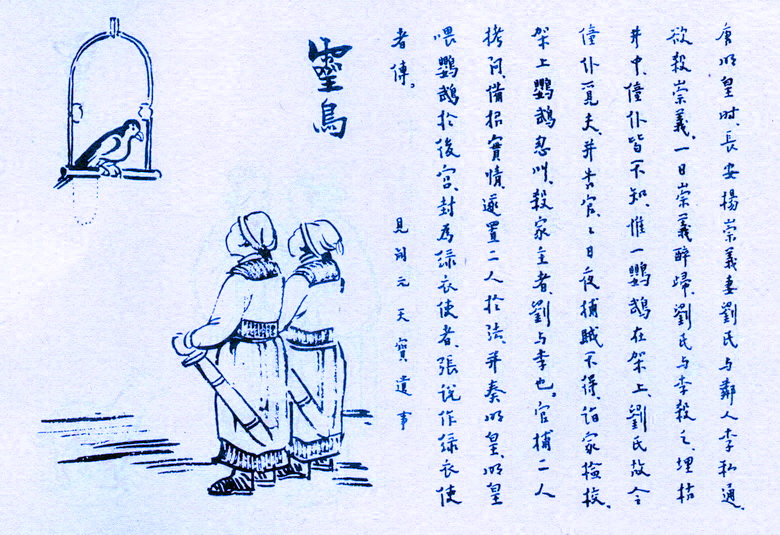 靈鳥
唐明皇時、長安揚崇義妻劉氏与鄰人李私通、
欲殺崇義。一日崇義醉歸、劉氏与李殺之、埋枯
井中、僮仆皆不知、惟一鸚鵡在架上、劉氏故令
僮仆覓夫、并告官、々日夜捕賊不得、詣家檢校、
架上鸚鵡忽叫、殺家主者、劉与李也。官捕二人
拷问、備招實情、遂置二人於法、并奏明皇、明皇
喂鸚鵡於後宮、封為綠衣使者、張说作綠衣使
者傳。
見開元天寶遺事